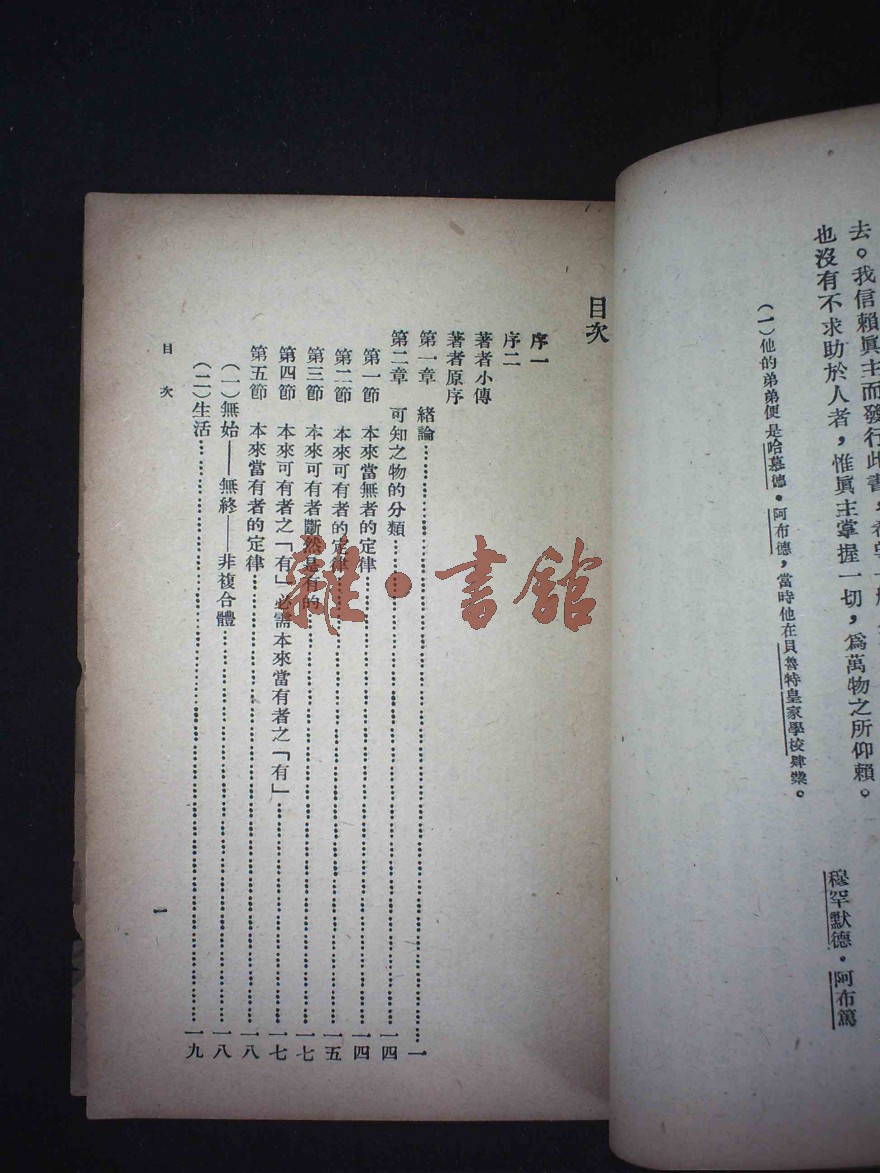 去。我信賴眞主而發行此書,
也沒有不求助於人者,惟眞主掌握一切,爲萬物之所仰賴。
(一)他的弟弟便是哈慕德.阿布德,當時他在貝魯特皇家學校肄業。
穆罕默德.阿布篤
目次
序一
序二
著者小傳
著者原序
第一章 緒論……一
第二章 可知之物的分類……一四
第一節 本來當無者的定律……一四
第二節 本來可有者的定律……一五
第三節 本來可有者斷然是有的……一七
第四節 本來可有者之「有」必需本來當有者之「有」……一七
第五節 本來當有者的定律……一八
(一)無始——無終——非複合體……一八
(二)生活……一九
目次
一
雜·書館